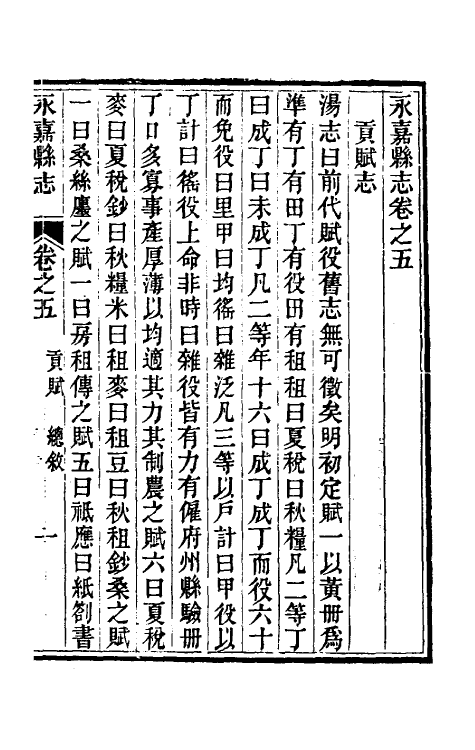 永嘉縣志卷之五
貢賦志
湯志曰前代賦役舊志無可徵矣明初定賦一以黃冊爲
準有丁有田丁有役田有租租曰夏稅曰秋糧凡二等丁
曰成丁曰未成丁凡二等年十六曰成丁成丁而役六十
而免役曰里甲曰均徭曰雜泛凡三等以戶計曰甲役以
丁計曰徭役上命非時曰雜役皆有力有僱府州縣驗册
丁口多寡事產厚薄以均適其力其制農之賦六曰夏稅
麥曰夏稅鈔曰秋糧米曰租麥曰租豆曰秋租鈔桑之賦
一曰桑絲廛之賦一曰房租傳之賦五曰祗應曰紙劄書
永嘉縣志
卷之五
貢賦
總敘
一